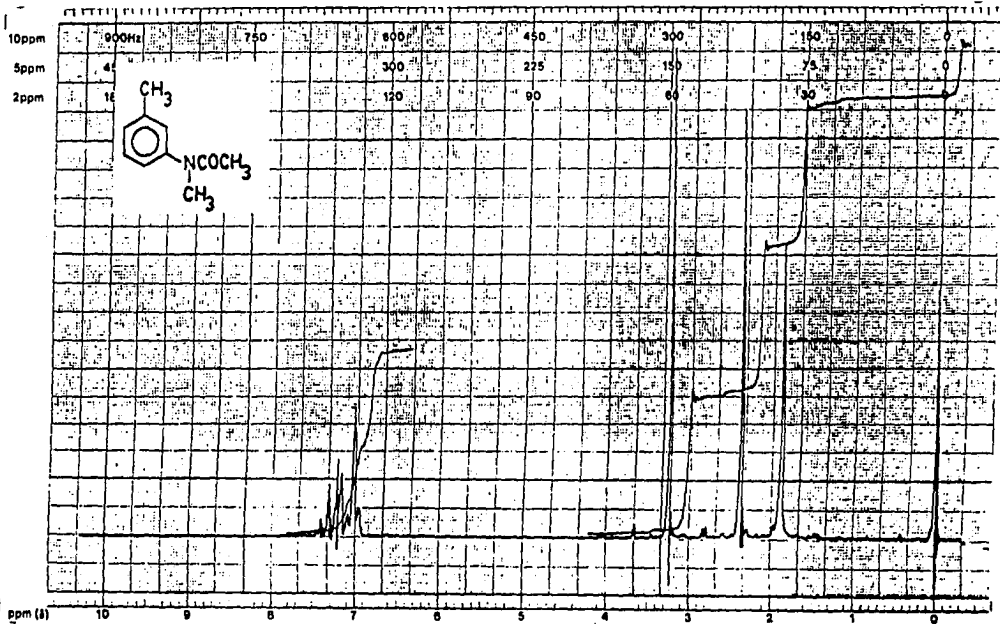 10ppm 900Hz 750 600 450 300 150 0
5ppm 300 225 150 75 0
2ppm 120 90 60 30 0
CH3
NCOCH3
CH3
ppm (δ) 10 9 8 7 6 5 4 3 2 1 0